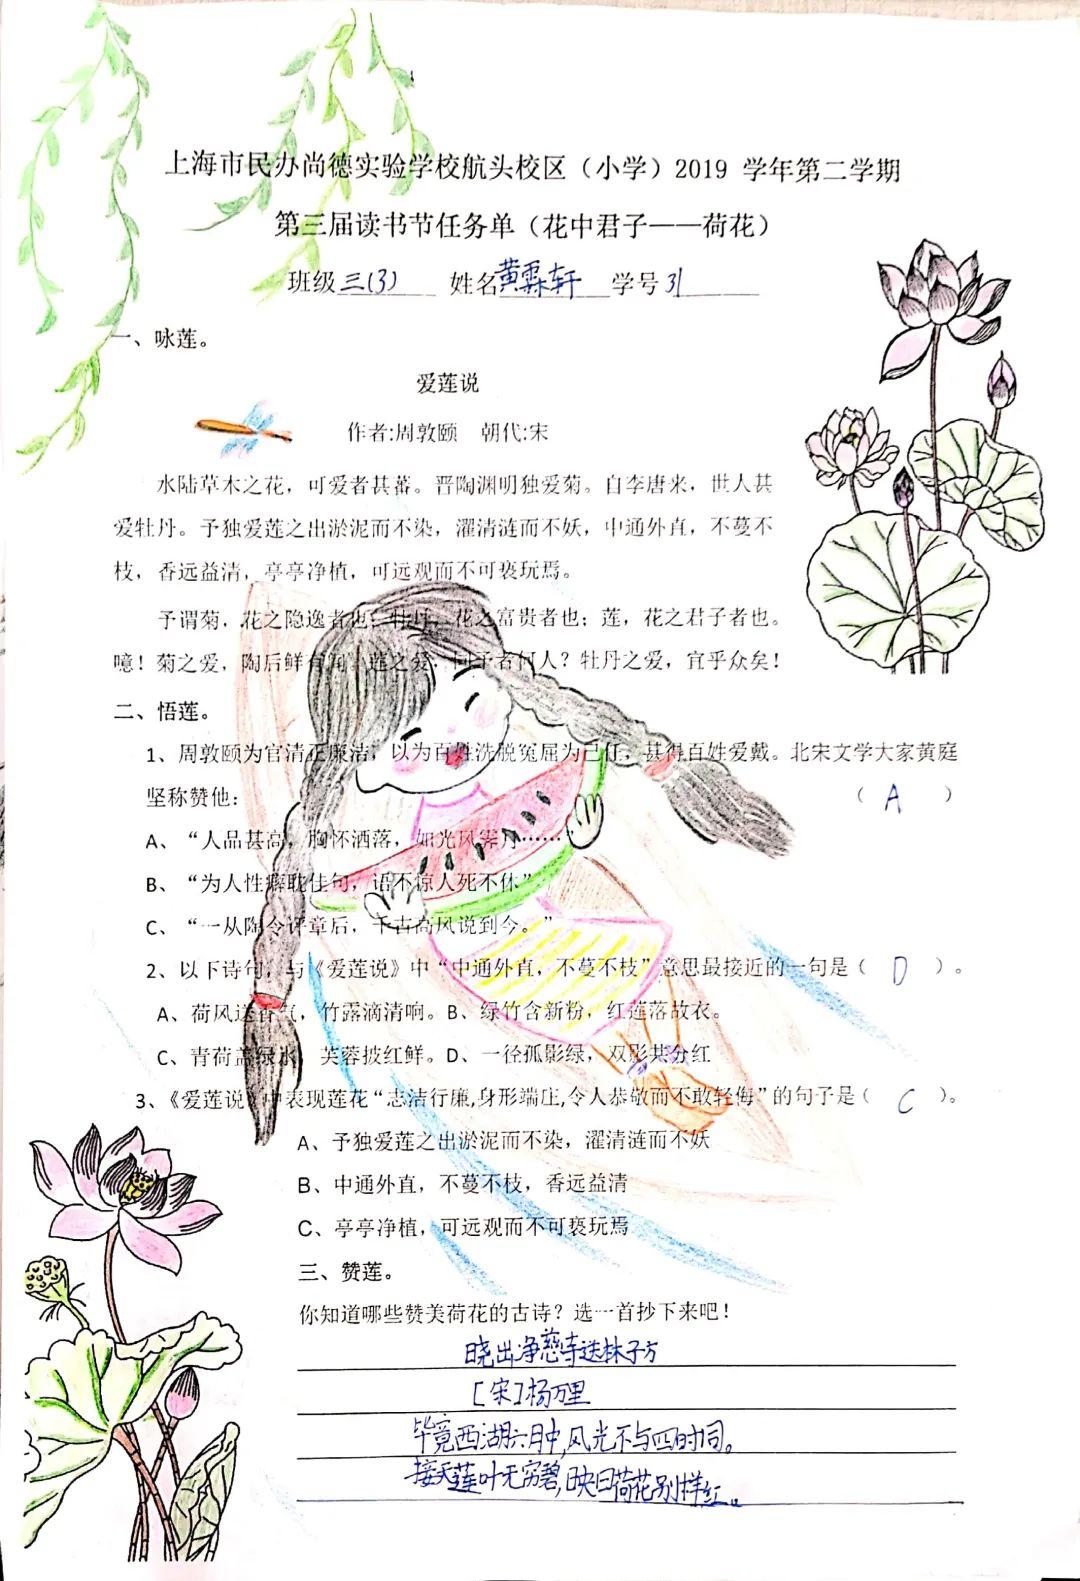 上海市民办尚德实验学校航头校区（小学）2019 学年第二学期
第三届读书节任务单（花中君子——荷花）
班级三(3) 姓名黄霖轩 学号31
一、咏莲。
爱莲说
作者:周敦颐 朝代:宋
水陆草木之花，可爱者甚蕃。晋陶渊明独爱菊。自李唐来，世人甚
爱牡丹。予独爱莲之出淤泥而不染，濯清涟而不妖，中通外直，不蔓不
枝，香远益清，亭亭净植，可远观而不可亵玩焉。
予谓菊，花之隐逸者也；牡丹，花之富贵者也；莲，花之君子者也。
噫！菊之爱，陶后鲜有闻。莲之爱，同予者何人？牡丹之爱，宜乎众矣！
二、悟莲。
1、周敦颐为官清正廉洁，以为百姓洗脱冤屈为己任，甚得百姓爱戴。北宋文学大家黄庭
坚称赞他: （ A ）
A、“人品甚高，胸怀洒落，如光风霁月……”
B、“为人性癖耽佳句，语不惊人死不休”
C、“一从陶令评章后，千古高风说到今。”
2、以下诗句，与《爱莲说》中“中通外直，不蔓不枝”意思最接近的一句是（ D ）。
A、荷风送香气，竹露滴清响。B、绿竹含新粉，红莲落故衣。
C、青荷盖绿水，芙蓉披红鲜。D、一径孤影绿，双影共分红
3、《爱莲说》中表现莲花“志洁行廉,身形端庄,令人恭敬而不敢轻侮”的句子是（ C ）。
A、予独爱莲之出淤泥而不染，濯清涟而不妖
B、中通外直，不蔓不枝，香远益清
C、亭亭净植，可远观而不可亵玩焉
三、赞莲。
你知道哪些赞美荷花的古诗？选一首抄下来吧！
晓出净慈寺送林子方
[宋]杨万里
毕竟西湖六月中,风光不与四时同。
接天莲叶无穷碧,映日荷花别样红。